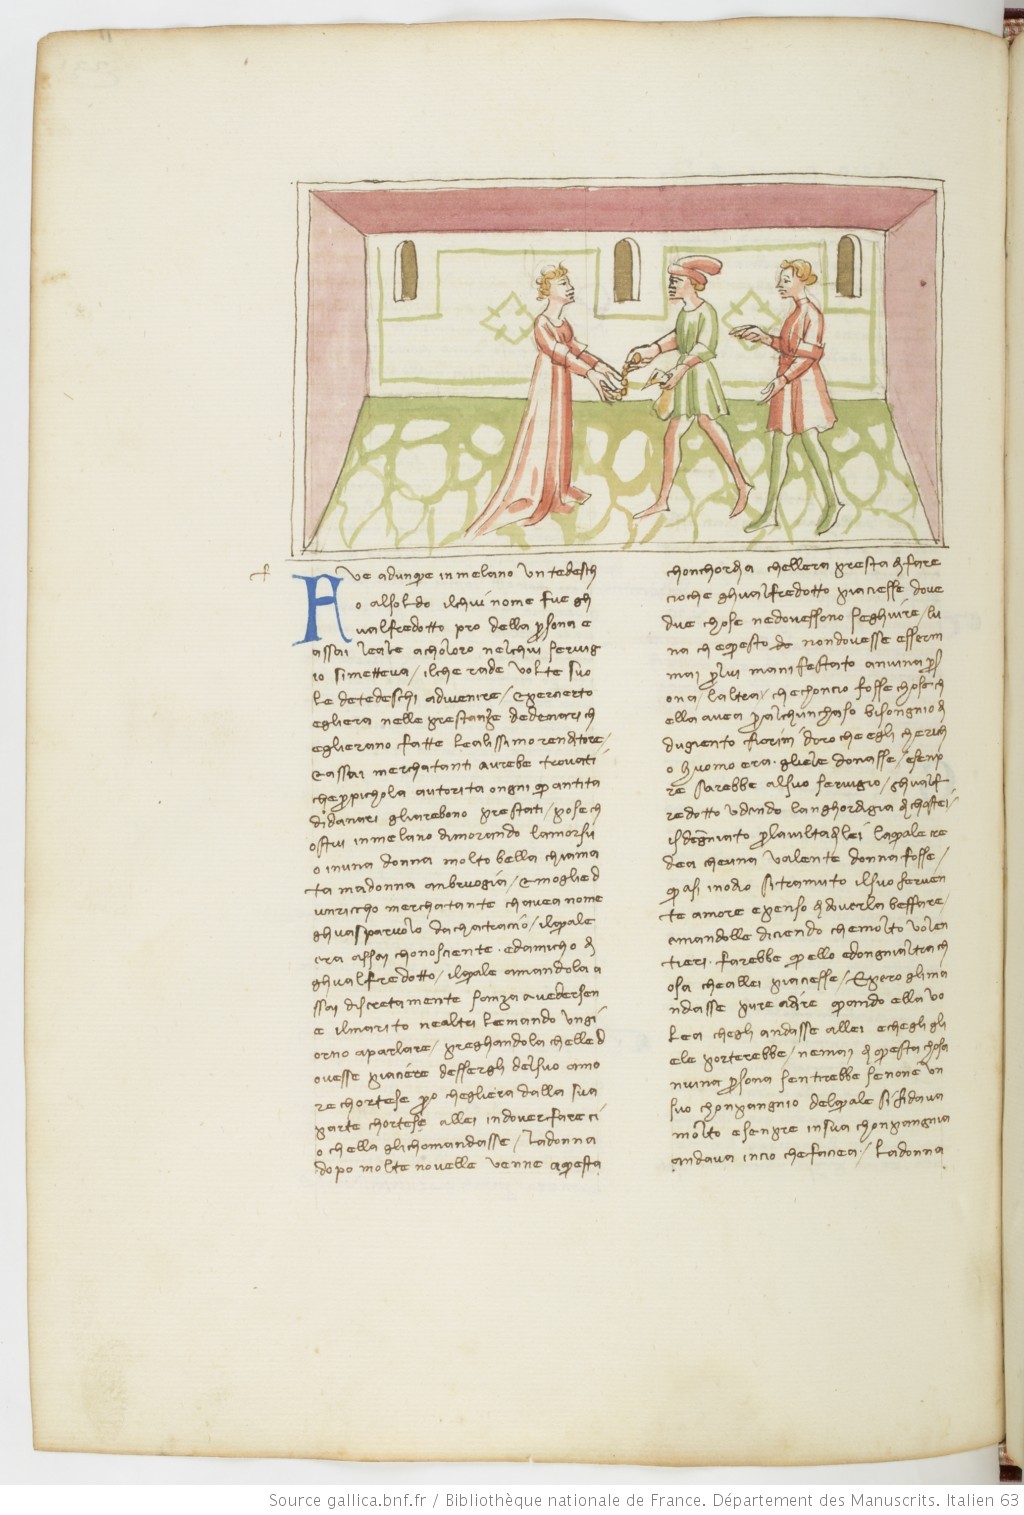 Fue adunque in melano un tedesch
o alsoldo ilchui nome fue gh
ualfredotto pro della psona e
assai leale acholoro nelchui seruig
io simetteua / ilche rade uolte suo
le detedeschi aduenire / e percierto
egliera nelle prestanze dedenari ch
eglierano fatte lealissimo renditore /
assai merchatanti aurebe trouati
che p pichola autorita ongni quantita
didanari gliarebono prestati / pose ch
ostui in melano dimorando lamorsu
o inuna donna molto bella chiama
ta madonna anbruogia / e moglie d
unriccho merchatante chauea nome
ghuasparuolo dachatracio / ilquale
era assai chonosciente . edamicho di
ghualfredotto / ilquale amandola a
ssai discretamente sanza auedersen
e ilmarito nealtri lemando ungi
orno aparlare / preghandola chelle d
ouesse piaciere desserghi delsuo amo
re chortese po chegliera dalla sua
parte chortese allei indouer fare ci
o chella glichomandasse / ladonna
dopo molte nouelle uenne aquesta
chonchordia chellera presta di fare
cioche ghualfredotto piaciesse doue
due chose nedouessono seghuire / lu
na che questo nondouesse essern
mai plui manifestato aniuna pers
ona / laltra / che choncio fosse chosa ch
ella auea palchunchaso bisongnio di
dugiento fiorini doro che egli che rich
o huomo era . gliele donasse / e senp
re sarebbe alsuo seruigio / ghualf
redotto udendo langhordigia di chostei /
isdegniato plauilta di lei laquale cre
dea cheuna ualente donna fosse /
quasi inodio si tramuto ilsuo feruen
te amore e penso di douerla beffare /
emandolle diciendo chemolto uolen
tieri . farebbe quello edongnialtra ch
osa cheallei piaciesse / E pero glima
ndasse pure adire quando ella uo
lea chegli andasse allei echegli gli
ele porterebbe / nemai di questa chosa
niuna psona sentirebbe senone un
suo chonpangnio delquale si fidaua
molto esenpre insua chonpangnia
andaua incio che faciea / ladonna
Source gallica.bnf.fr / Bibliothèque nationale de France. Département des Manuscrits. Italien 63